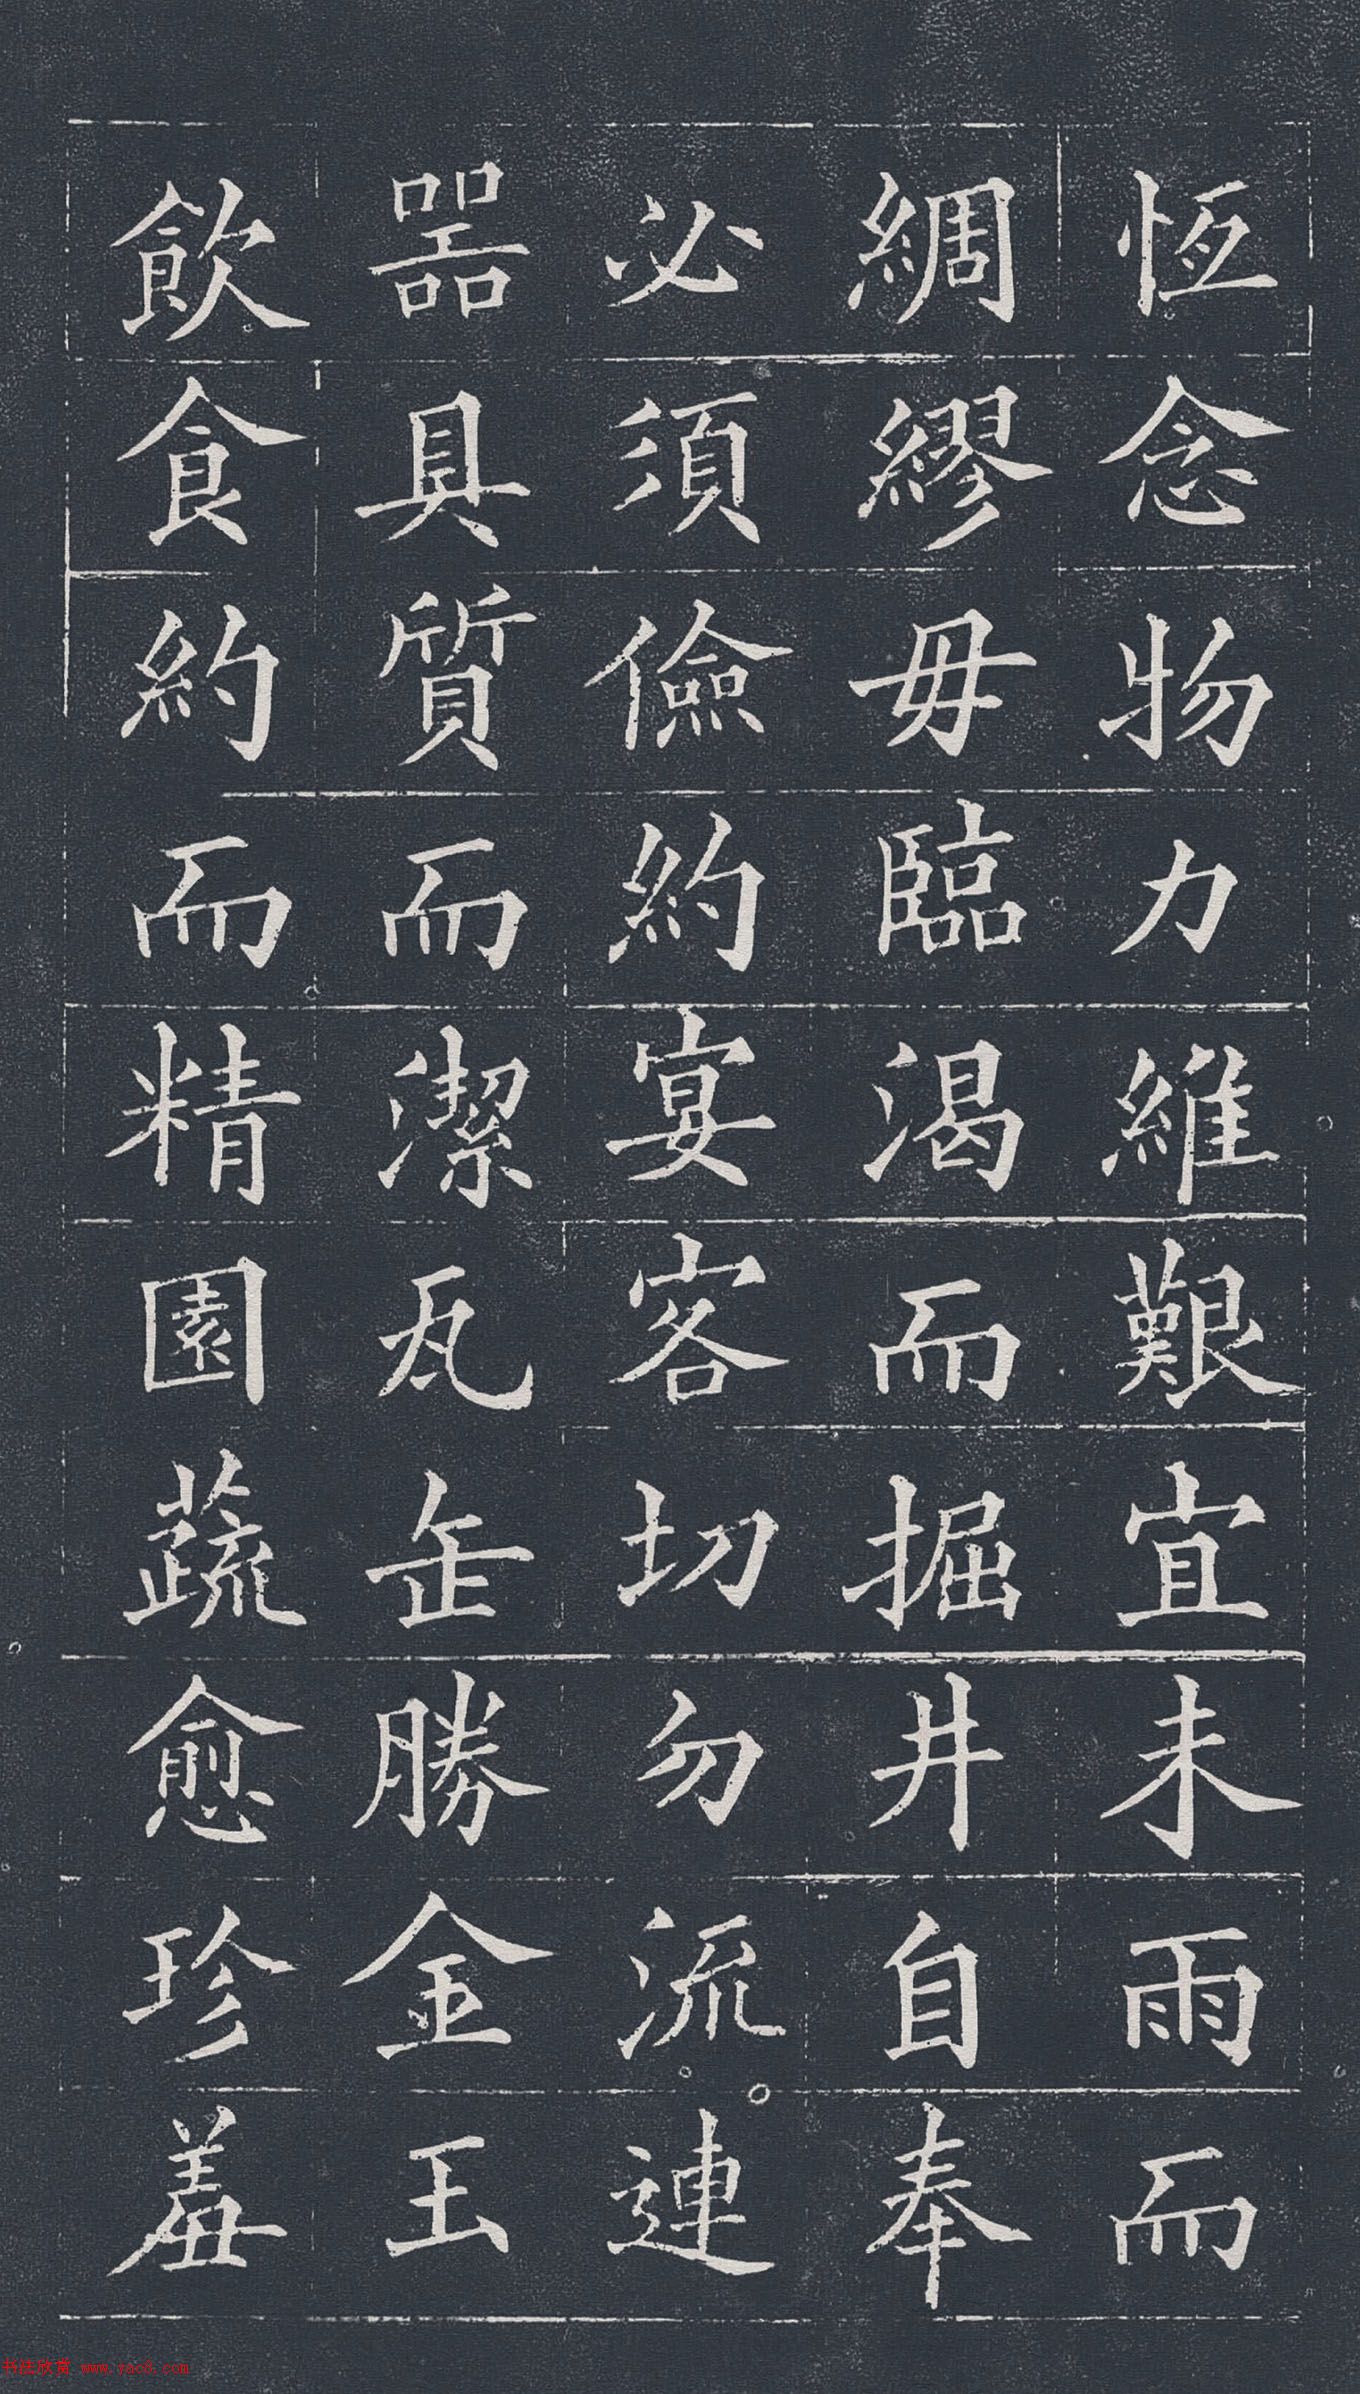 恆念物力維艱宜未雨而
綢繆毋臨渴而掘井自奉
必須儉約宴客切勿流連
器具質而潔瓦缶勝金玉
飲食約而精園蔬愈珍羞
书法欣赏 www.yac8.com